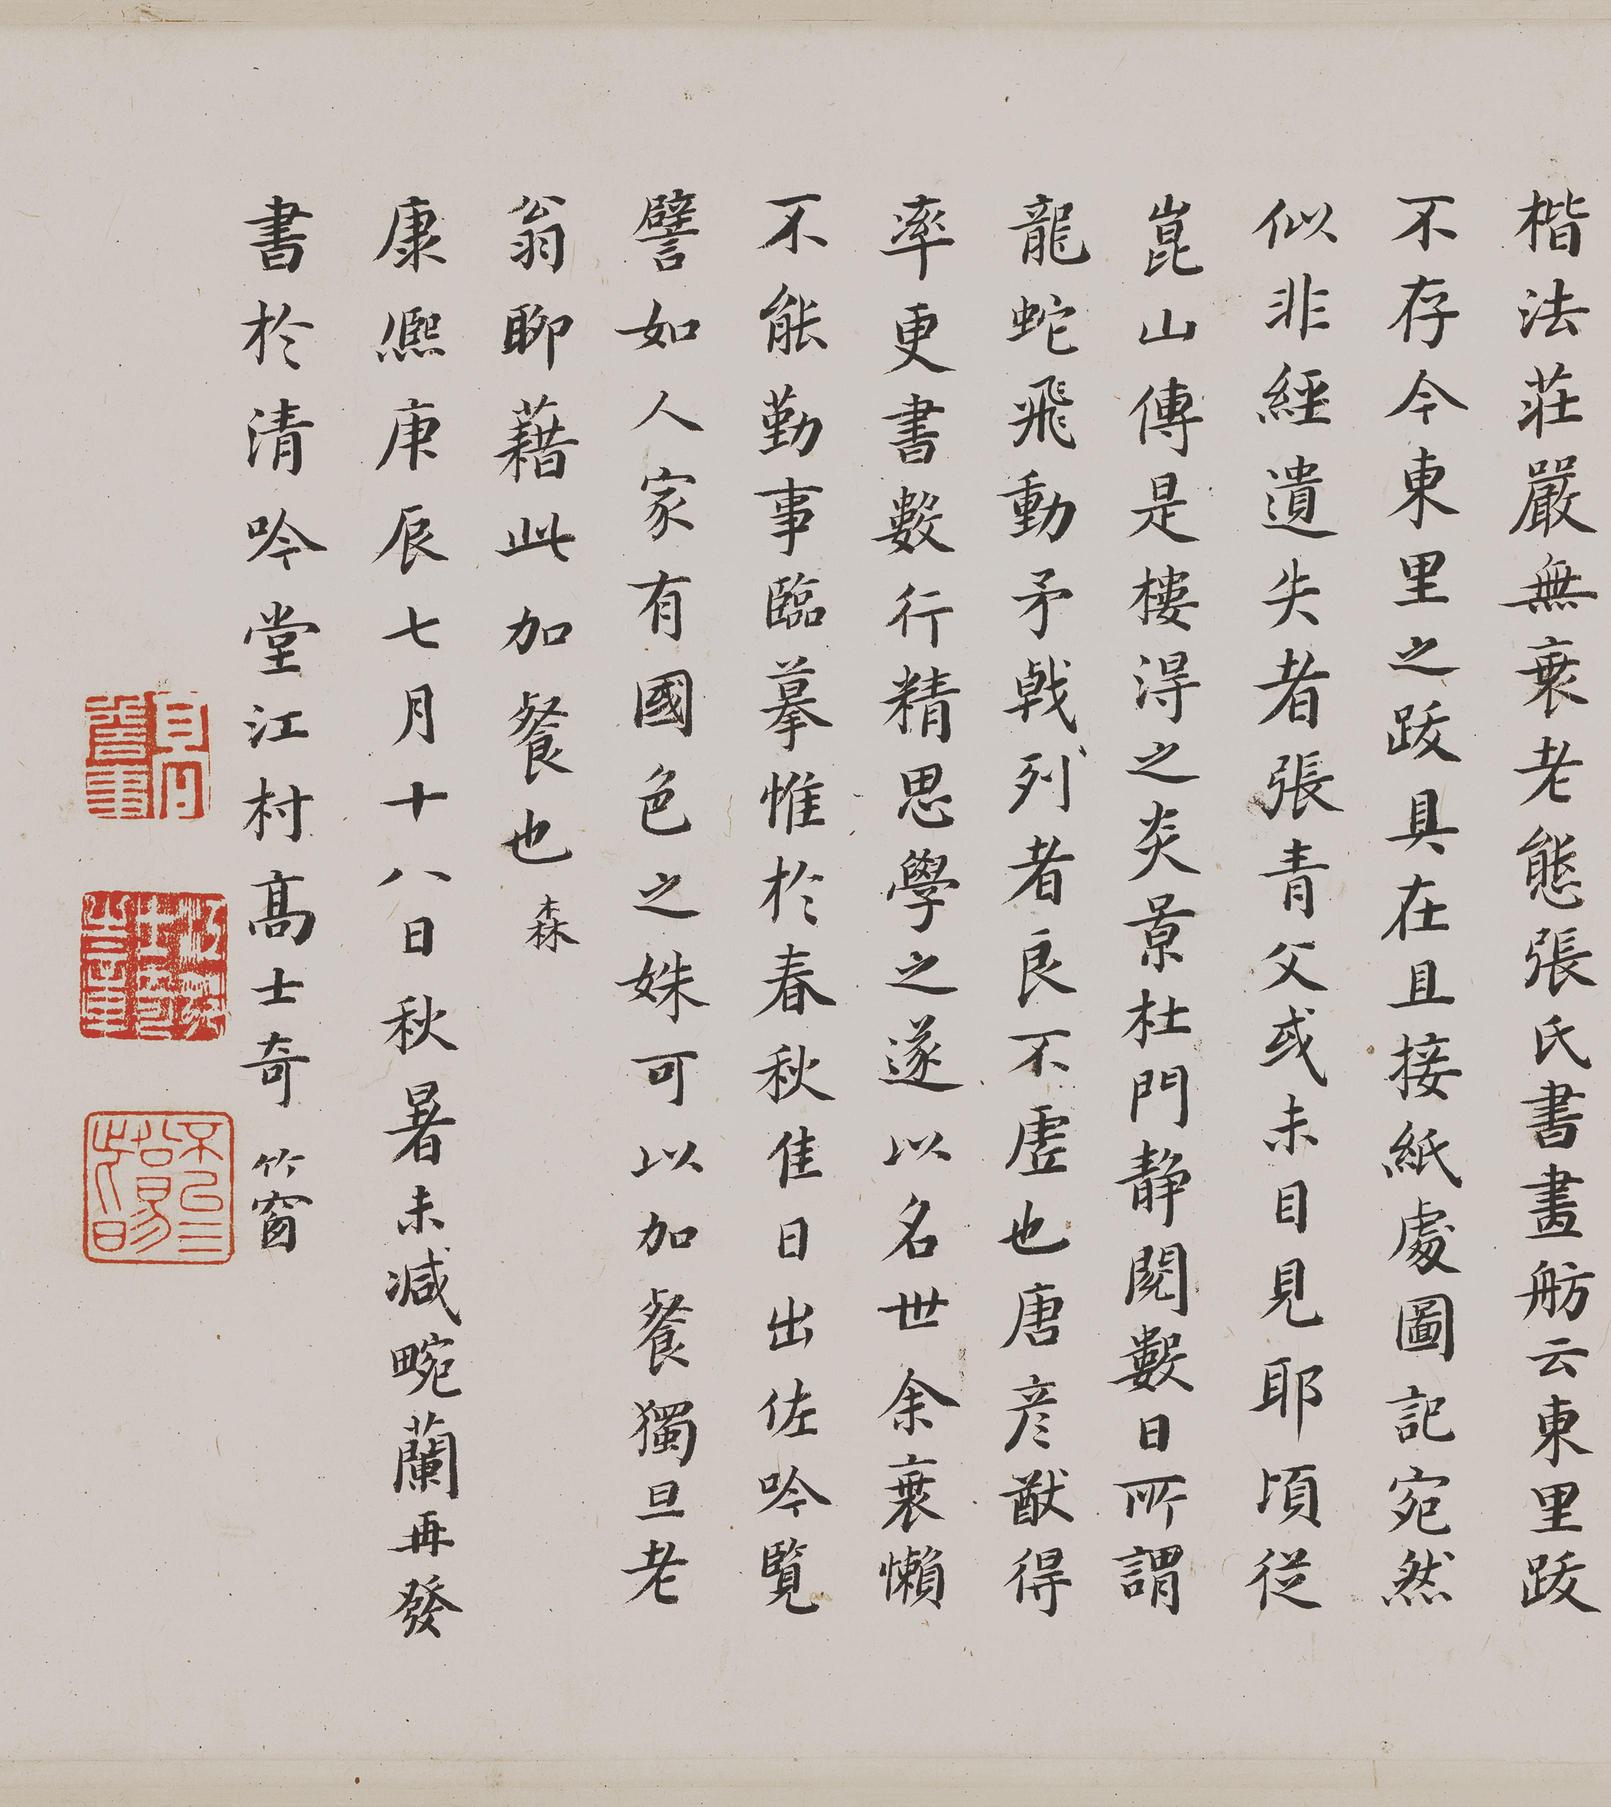 楷法莊嚴無衰老態張氏書畫舫云東里跋
不存今東里之跋具在且接紙處圖記宛然
似非經遺失者張青父或未目見耶頃從
崑山傳是樓淂之炎景杜門静閱數日所謂
龍蛇飛動矛戟列者良不虛也唐彦猷得
率更書數行精思學之遂以名世余衰懶
不能勤事臨摹惟於春秋佳日出佐吟覽
譬如人家有國色之姝可以加餐獨旦老
翁聊藉此加餐也 森
康熈庚辰七月十八日秋暑未减畹蘭再發
書於清吟堂江村高士奇 竹窗